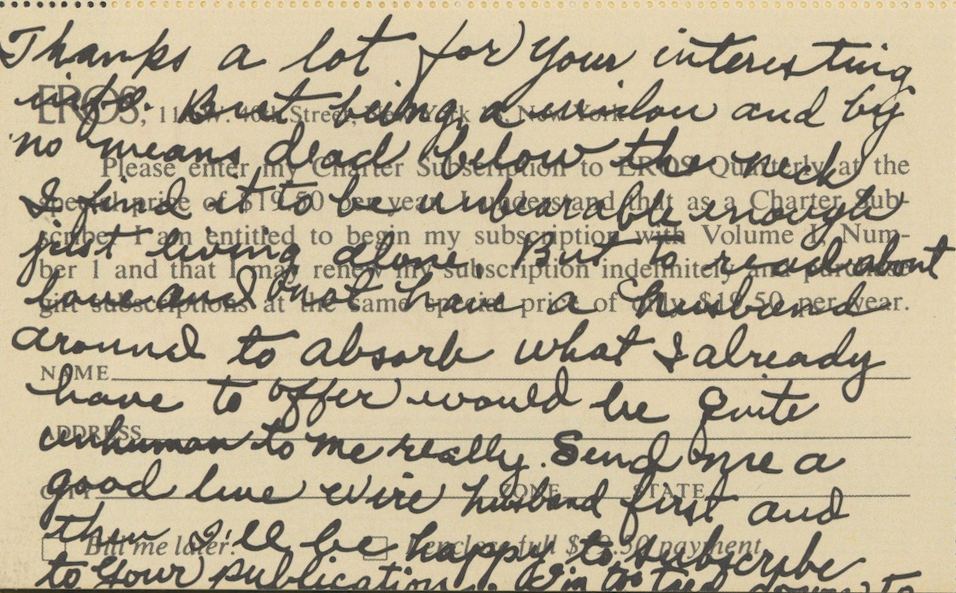 Thanks a lot for your interesting
info. But being a widow and by
no means dead below the neck
I find it to be unbearable enough
just living alone. But to read about
love and not have a husband
around to absorb what I already
have to offer would be quite
unhuman to me really. Send me a
good live wire husband first and
then I'll be happy to subscribe
to your publication. tied down to
EROS, 11 W. 40th Street, New York, New York
Please enter my Charter Subscription to EROS Quarterly at the
special price of $19.50 per year. I understand that as a Charter Sub-
scriber I am entitled to begin my subscription with Volume I, Num-
ber 1 and that I may renew my subscription indefinitely and
gift subscriptions at the same special price of only $19.50 per year.
NAME
ADDRESS
CITY ZONE STATE
Bill me later. I enclose full $19.50 payment